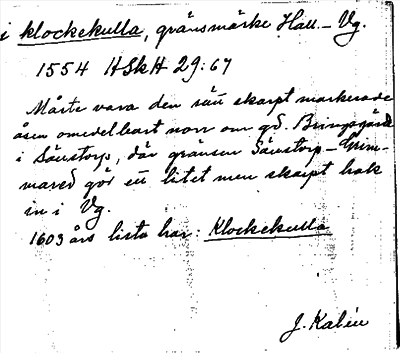 i klockekulla, gränsmärke Hall. - Vg.
1554 HSkH 29:67
Måste vara den rätt skarpt markerade
åsen omedelbart norr om gd. Bringsgård
i Sännstorp, där gränsen Sännstorp - Grim-
mared gör ett litet men skarpt hak
in i Vg.
1603 års lista har: Klockekulla
J. Kalén